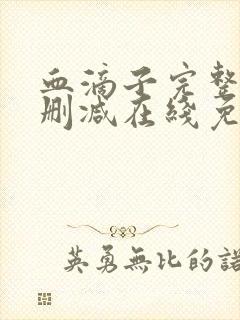 血滴子完整
删减在线免
英勇無比的諾